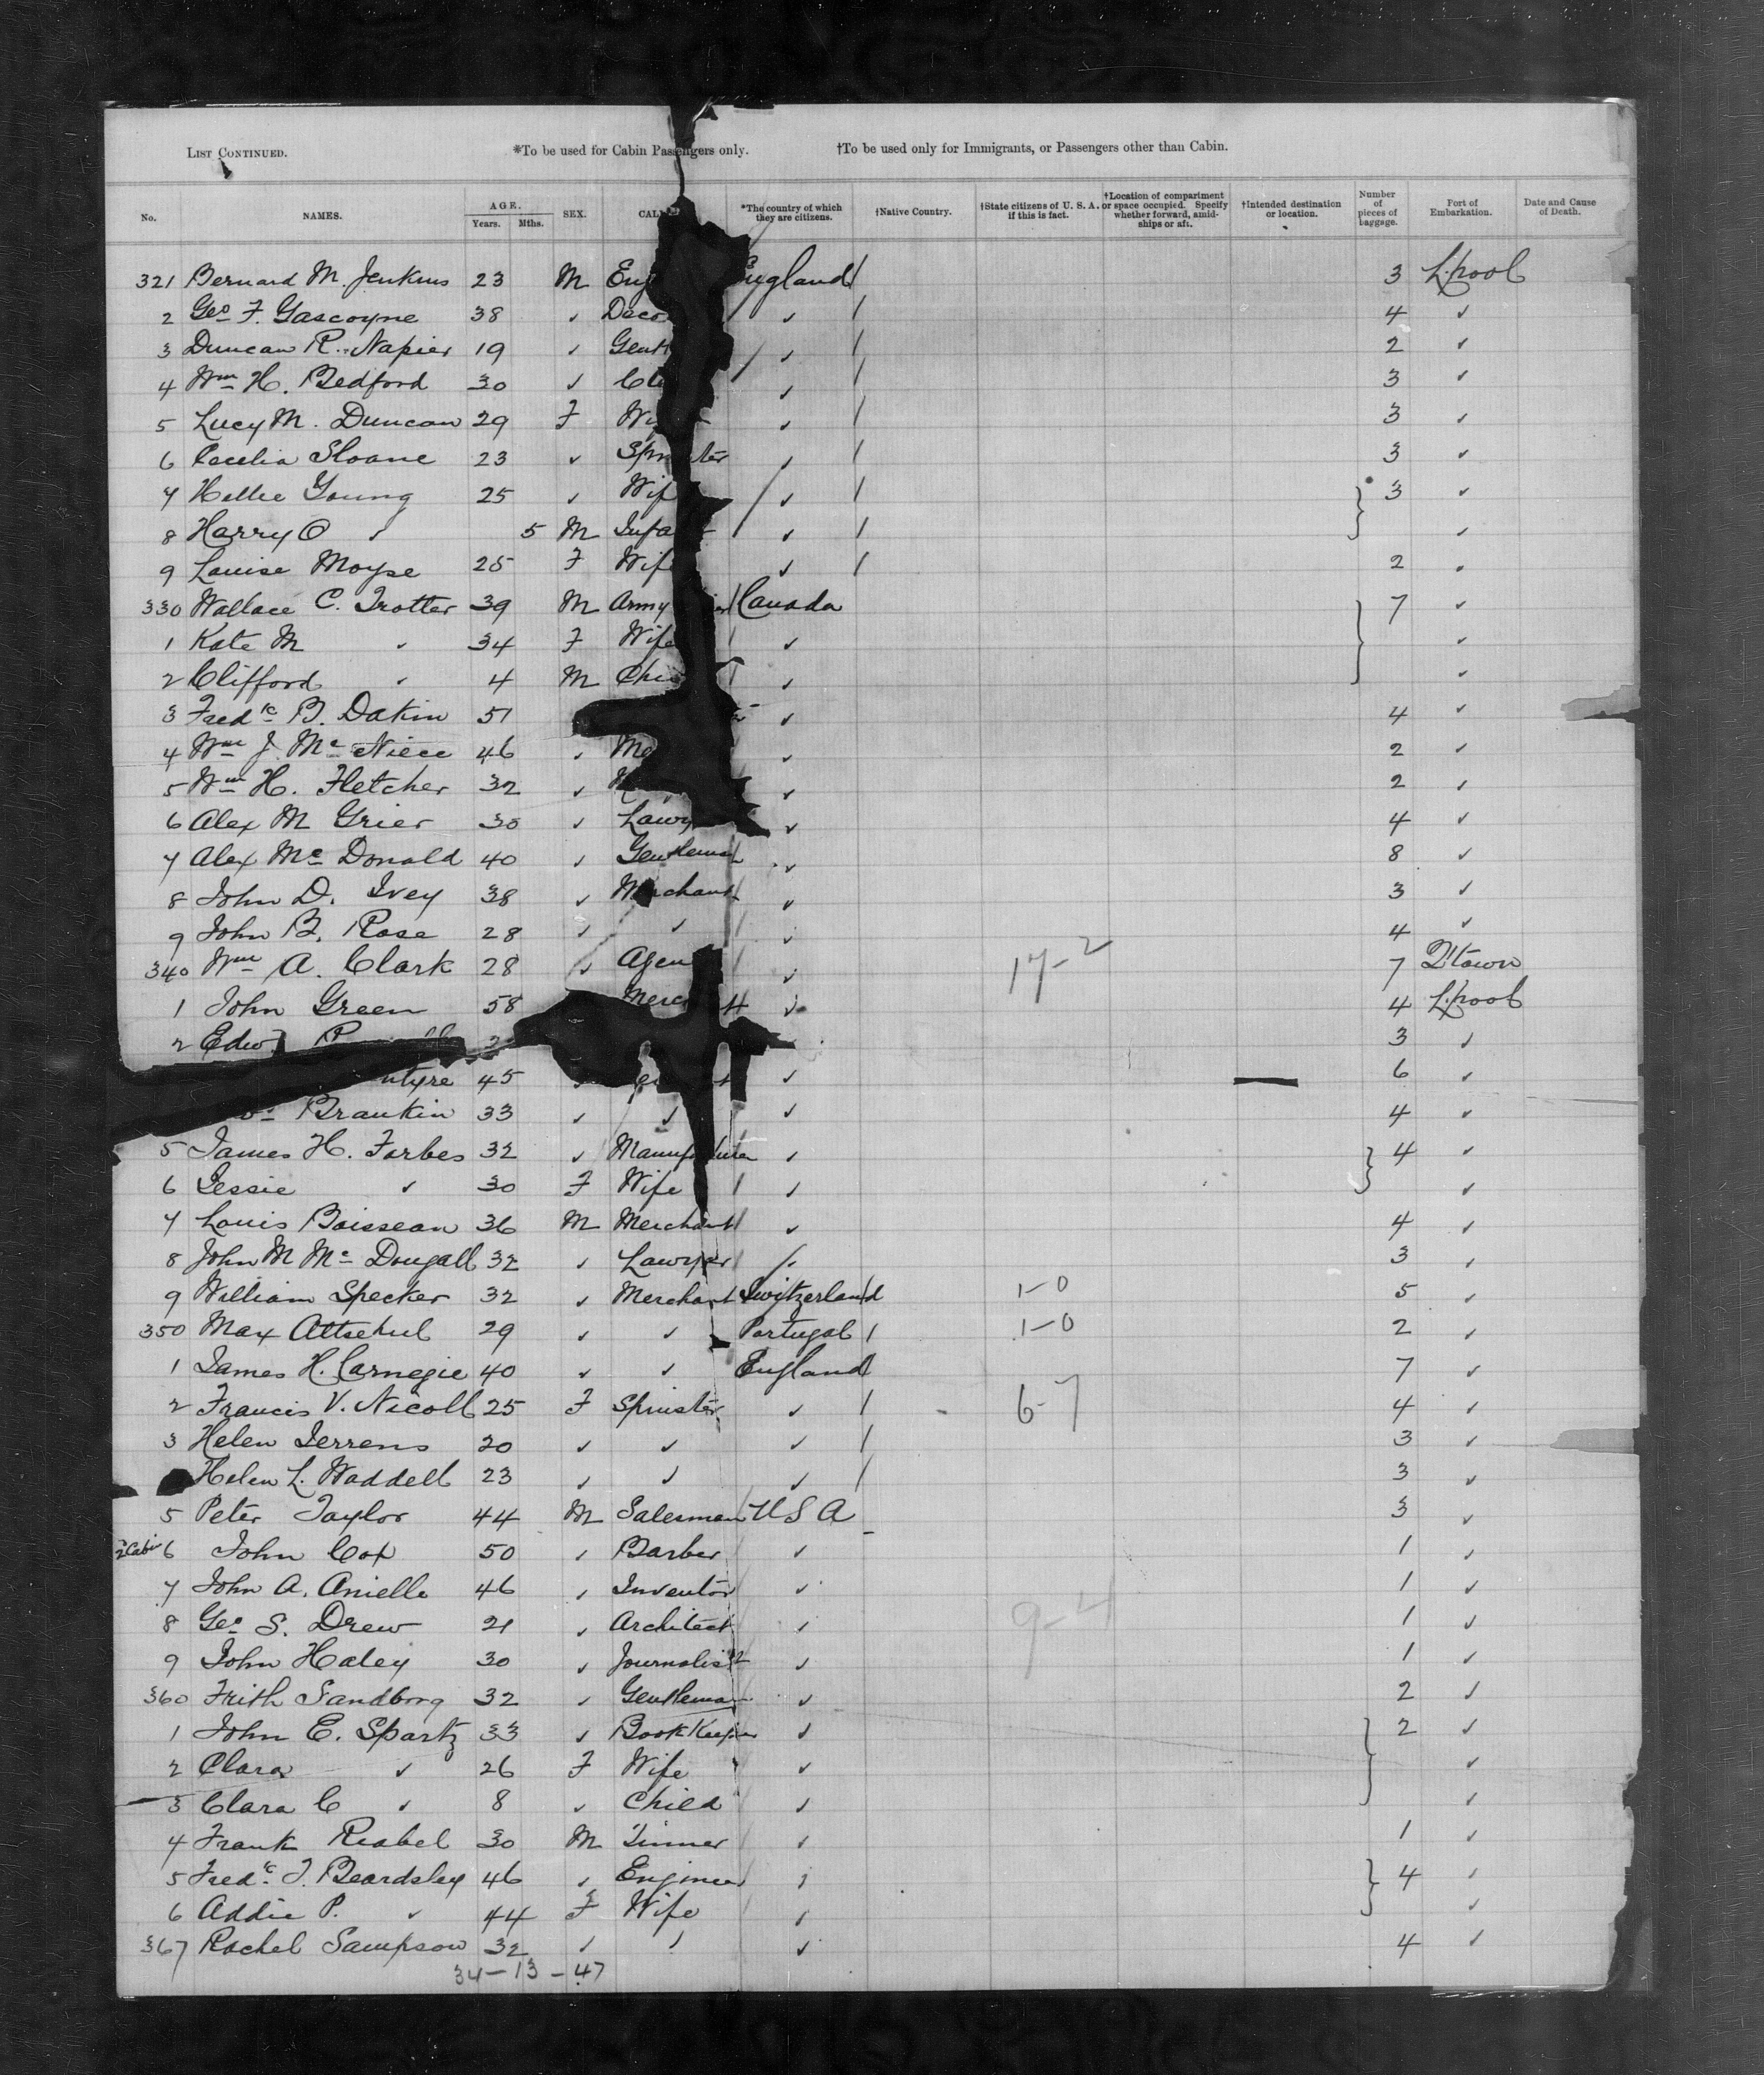 List Continued. *To be used for Cabin Passengers only. †To be used only for Immigrants, or Passengers other than Cabin.
No. NAMES. AGE. Years. Mths. SEX. CAL *The country of which they are citizens. †Native Country. †State citizens of U. S. A. if this is fact. †Location of compartment or space occupied. Specify whether forward, amidships or aft. †Intended destination or location. Number of pieces of baggage. Port of Embarkation. Date and Cause of Death.
321 Bernard M. Jenkins 23 M Eng England / 3 L.pool
2 Geo F. Gascoyne 38 ✓ Deco ✓ / 4 ✓
3 Duncan R. Napier 19 ✓ Gent ✓ / 2 ✓
4 Wm H. Bedford 30 ✓ Cl ✓ / 3 ✓
5 Lucy M. Duncan 29 F Wi ✓ / 3 ✓
6 Cecelia Sloane 23 ✓ Sp ster ✓ / 3 ✓
7 Young 25 ✓ Wif ✓ / 3 ✓
8 Harry O ✓ 5 M Infa ✓ / ✓
9 Louise Moyse 25 F Wife ✓ / 2 ✓
330 Wallace C. Trotter 39 M Army Canada 7 ✓
1 Kate M ✓ 34 F Wife ✓ ✓
2 Clifford ✓ 4 M Chi ✓ ✓
3 Fredk B. Dakin 51 ✓ 4 ✓
4 Wm J. Mc Niece 46 ✓ Me ✓ 2 ✓
5 Wm H. Fletcher 32 ✓ ✓ 2 ✓
6 Alex M Grier 30 ✓ Lawy ✓ 4 ✓
7 Alex Mc Donald 40 ✓ Gentleman ✓ 8 ✓
8 John D. Ivey 38 ✓ Merchant ✓ 3 ✓
9 John B. Rose 28 ✓ ✓ ✓ 4 ✓
340 Wm A. Clark 28 ✓ Agen ✓ 17-2 7 Q'town
1 John Green 58 Merc t ✓ 4 L.pool
2 Edwd 3 ✓
ntyre 45 ✓ ✓ 6 ✓
Brankin 33 ✓ ✓ ✓ 4 ✓
5 James H. Forbes 32 ✓ Manufacturer ✓ 4 ✓
6 Jessie ✓ 30 F Wife ✓ ✓
7 Louis Boisseau 36 M Merchant ✓ 4 ✓
8 John M Mc Dougall 32 ✓ Lawyer ✓ 3 ✓
9 William Specker 32 ✓ Merchant Switzerland 1-0 5 ✓
350 Max Altschul 29 ✓ ✓ Portugal / 1-0 2 ✓
1 James H. Carnegie 40 ✓ ✓ England / 7 ✓
2 Francis V. Nicoll 25 F Spinster ✓ / 6-7 4 ✓
3 Helen Jerrens 20 ✓ ✓ ✓ / 3 ✓
Helen L. Waddell 23 ✓ ✓ ✓ / 3 ✓
5 Peter Taylor 44 M Salesman U S A 3 ✓
2 Cabin 6 John Cox 50 ✓ Barber ✓ 1 ✓
7 John A. Anielle 46 ✓ Inventor ✓ 1 ✓
8 Geo S. Drew 21 ✓ Architect ✓ 9-4 1 ✓
9 John Haley 30 ✓ Journalist ✓ 1 ✓
360 Frith Sandborg 32 ✓ Gentleman ✓ 2 ✓
1 John E. Spartz 33 ✓ Book Keeper ✓ 2 ✓
2 Clara ✓ 26 F Wife ✓ ✓
3 Clara C ✓ 8 ✓ Child ✓ ✓
4 Frank Riabel 30 M Tinner ✓ 1 ✓
5 Fredk T. Beardsley 46 ✓ Engineer ✓ 4 ✓
6 Addie P. ✓ 44 F Wife ✓ ✓
367 Rachel Sampson 32 ✓ ✓ ✓ 4 ✓
34-13-47